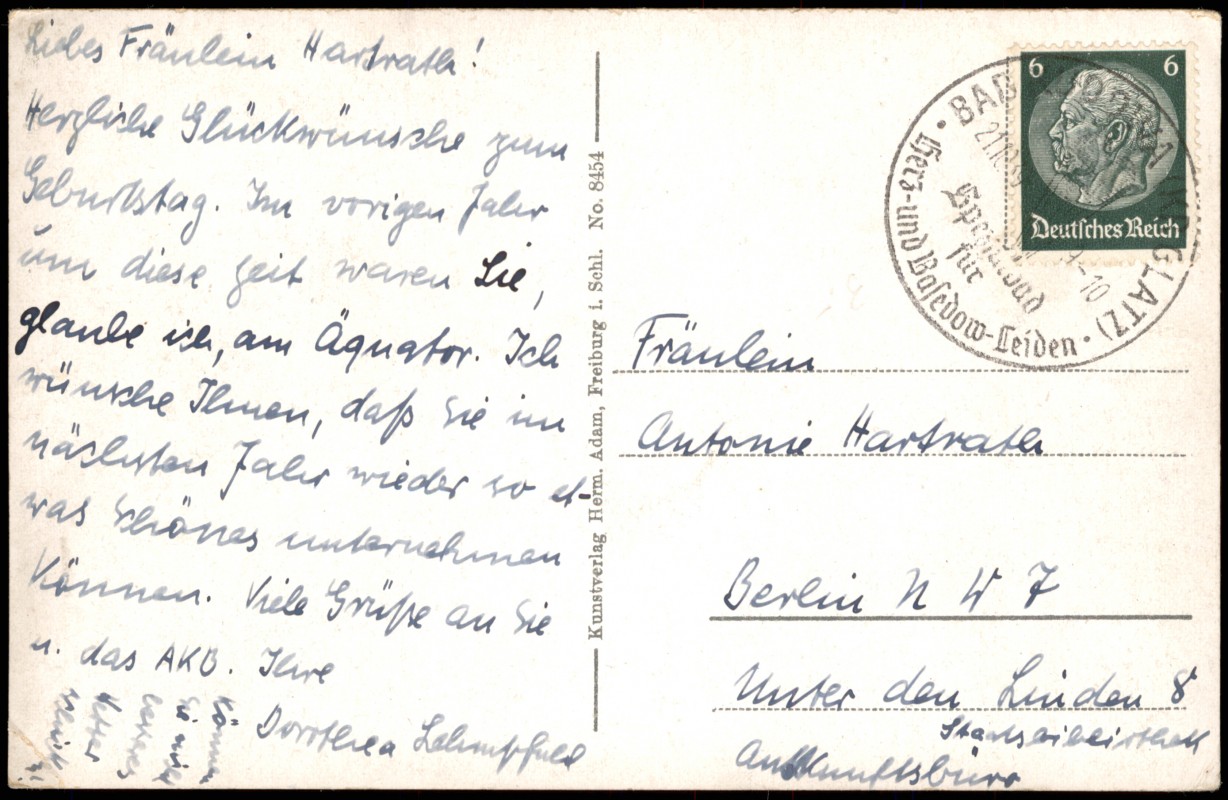 Liebes Fräulein Hartrath!
Herzliche Glückwünsche zum
Geburtstag. Im vorigen Jahr
um diese Zeit waren Sie,
glaube ich, am Äquator. Ich
wünsche Ihnen, daß Sie im
nächsten Jahr wieder so et-
was Schönes unternehmen
können. Viele Grüße an Sie
u. das AKB. Ihre
Dorothea
Können
Sie mich
Kunstverlag Herm. Adam, Freiburg i. Schl. No. 8454
6 6
Deutsches Reich
BAD GLATZ)
Herz- und Basedow-Leiden
Spezialbad
für
-10
Fräulein
Antonie Hartrath
Berlin N W 7
Unter den Linden 8
Staatsbibliothek
Auskunftsbüro